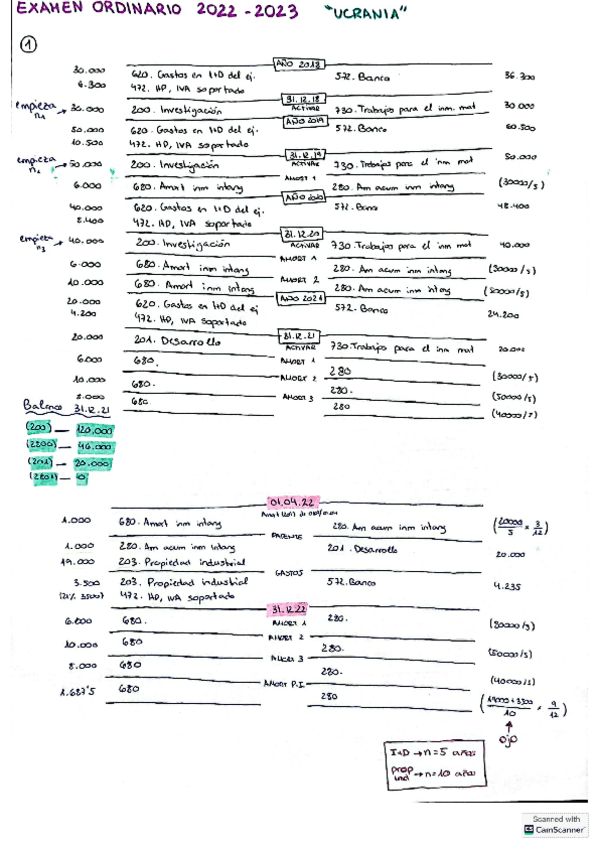 EXAMEN ORDINARIO 2022-2023 "UCRANIA"
1
AÑO 2018
30.000 620. Gastos en I+D del ej. 572. Banco 36.300
6.300 472. HP, IVA soportado
31.12.18
empieza n1 → 30.000 200. Investigación ACTIVAR 730. Trabajos para el inm. mat 30.000
AÑO 2019
50.000 620. Gastos en I+D del ej. 572. Banco 60.500
10.500 472. HP, IVA soportado
31.12.19
empieza n2 → 50.000 200. Investigación ACTIVAR 730. Trabajos para el inm mat 50.000
AMORT 1
6.000 680. Amort inm intang 280. Am acum inm intang (30000/5)
AÑO 2020
40.000 620. Gastos en I+D del ej. 572. Banco 48.400
8.400 472. HP, IVA soportado
31.12.20
empieza n3 → 40.000 200. Investigación ACTIVAR 730. Trabajos para el inm mat 40.000
AMORT 1
6.000 680. Amort inm intang 280. Am acum inm intang (30000/5)
AMORT 2
10.000 680. Amort inm intang 280. Am acum inm intang (50000/5)
AÑO 2021
20.000 620. Gastos en I+D del ej 572. Banco 24.200
4.200 472. HP, IVA soportado
31.12.21
20.000 201. Desarrollo ACTIVAR 730. Trabajos para el inm mat 20.000
AMORT 1
6.000 680. 280 (30000/5)
AMORT 2
10.000 680. 280. (50000/5)
AMORT 3
8.000 680. 280 (40000/5)
Balance 31.12.21
(200) — 120.000
(2800) — 46.000
(201) — 20.000
(2801) — 0
01.04.22
1.000 680. Amort inm intang 280. Am acum inm intang (20000/5 × 3/12)
PATENTE
1.000 280. Am acum inm intang 201. Desarrollo 20.000
19.000 203. Propiedad industrial
GASTOS
3.500 203. Propiedad industrial 572. Banco 4.235
(21% 3500) 472. HP, IVA soportado
31.12.22
6.000 680. AMORT 1 280. (30000/5)
AMORT 2
10.000 680 280. (50000/5)
AMORT 3
8.000 680 280. (40000/5)
AMORT P.I.
1.687'5 680 280 (19000+3500/10 × 9/12)
↑
ojo
I+D → n=5 años
prop ind → n=10 años
Scanned with
CamScanner